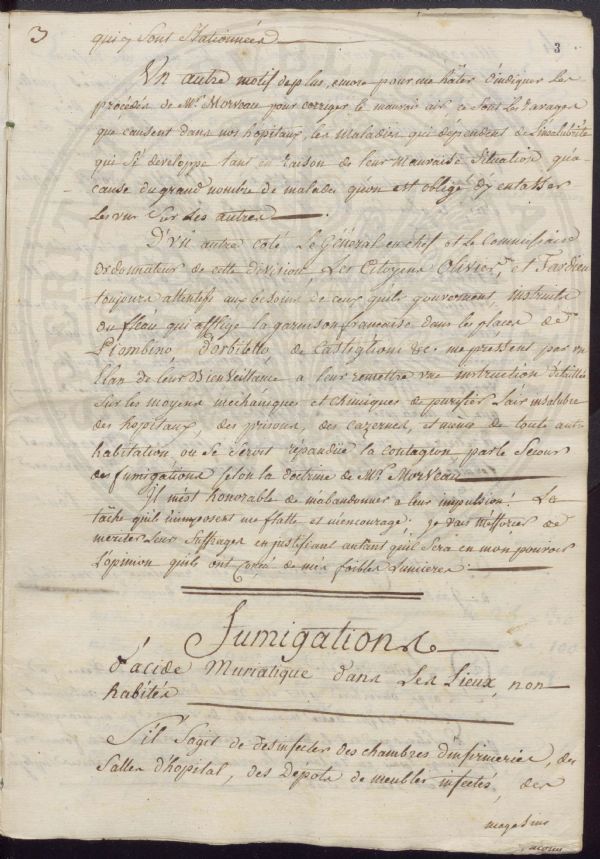 3
3
qui y sont stationnées
Un autre motif de plus, encore pour me hâter d'indiquer les
procédés de Mr. Morveau pour corriger le mauvais air, ce sont les ravages
que causent dans nos hôpitaux, les maladies qui dépendent de l'insalubrité
qui s'y developpe tant en raison de leur mauvaise situation qu'a-
cause du grand nombre de malades qu'on est obligé d'y entasser
les uns sur les autres
D'un autre coté le Général en chef et le Commissaire
ordonnateur de cette division, Les Citoyens Olivier, et Tardieu
toujours attentifs aux besoins de ceux qu'ils gouvernent, instruits
du fléau qui afflige la garnison francaise dans les places de
Piombino, d'orbitello, de Castiglioni &c. me pressent par un
Elan de leur Bienveillance a leur remettre une instruction détaillée
sur les moyens mechaniques et chimiques de purifier l'air insalubre
des hopitaux, des prisons, des cazernes, et meme de toute autre
habitation ou se seroit répandüe la contagion, par le secour
des fumigations selon la doctrine de Mr. Morveau
Il m'est honorable de m'abandonner a leur impulsion! La
tâche qu'ils m'imposent me flatte et m'encourage; je vais m'efforcer de
meriter leur suffrages en justifiant autant qu'il sera en mon pouvoir
L'opinion qu'ils ont conçu de mes foibles lumieres
Fumigations
d'acide Muriatique dans Les Lieux, non
habités
S'il s'agit de desinfecter des chambres d'infirmeries, des
Salles d'hopital, des Dépots de meubles infectés, des
magasins